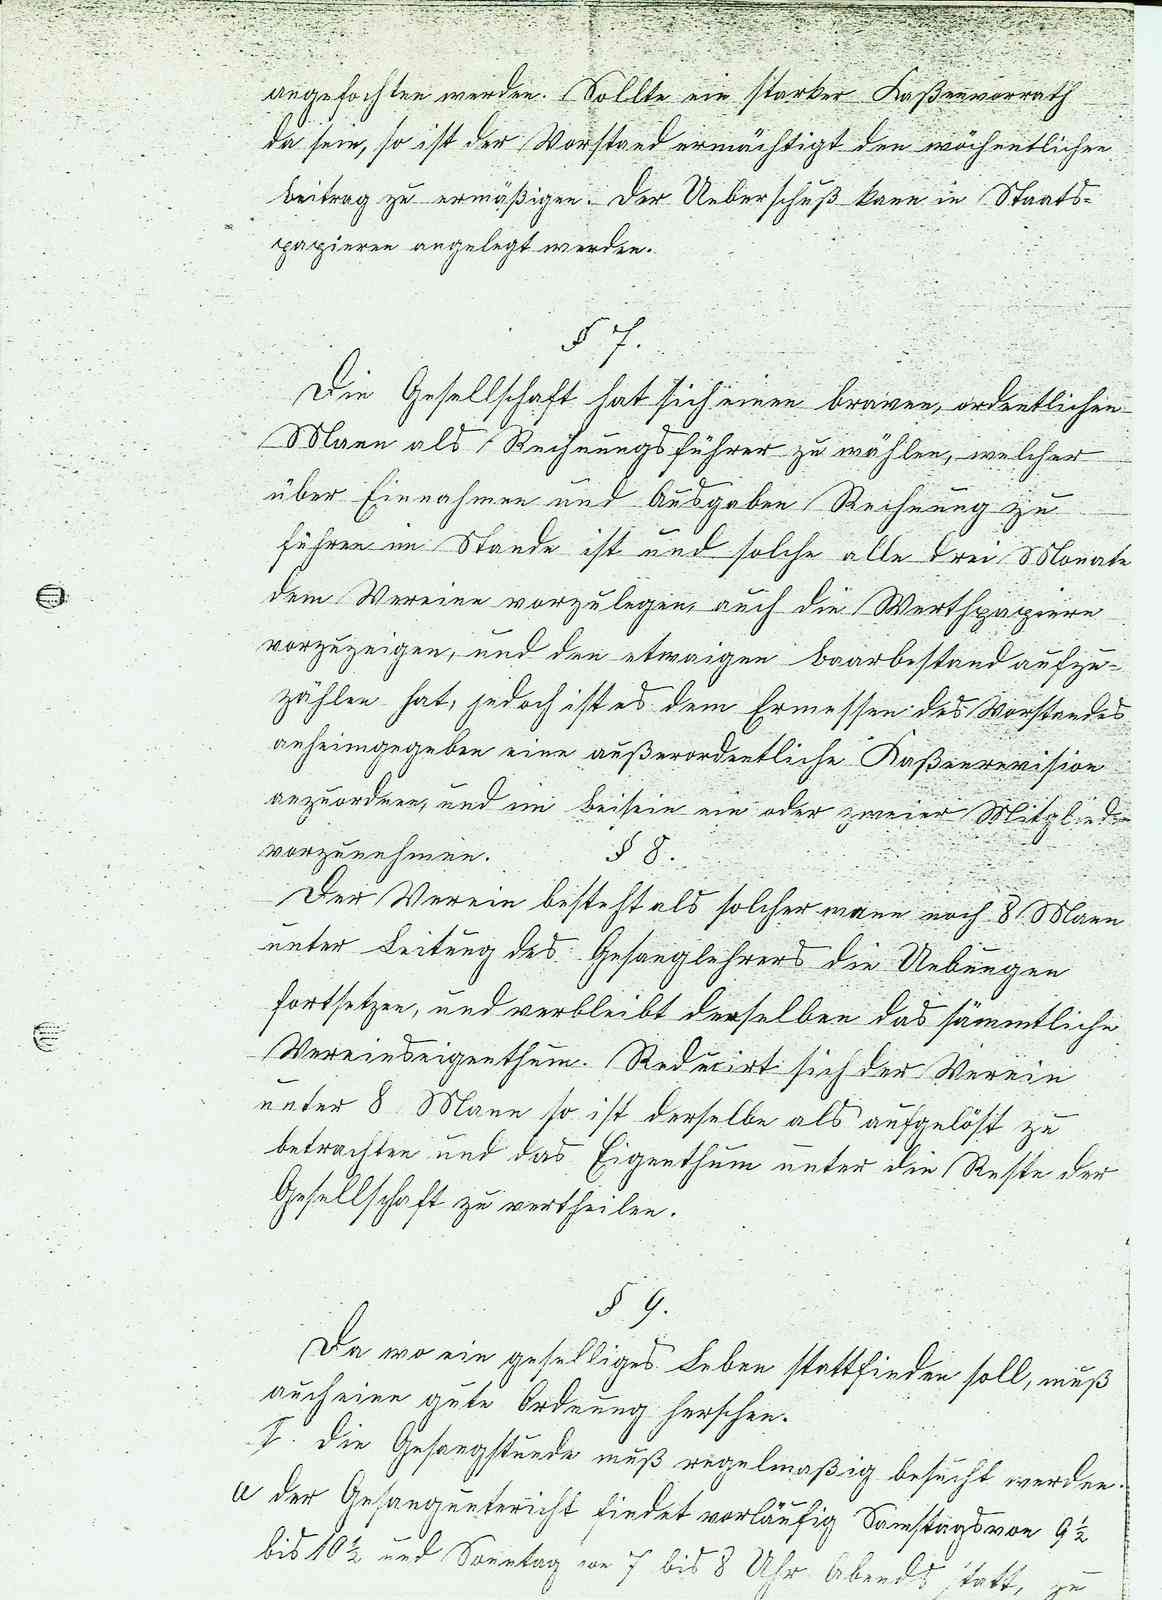 angefochten werden. Sollte ein starker Kaßenvorrath
da sein, so ist der Vorstand ermächtigt den wöchentlichen
beitrag zu ermäßigen. Der Ueberschuß kann in Staats-
papieren angelegt werden.
§ 7.
Die Gesellschaft hat sich einen braven, ordentlichen
Mann als Rechnungsführer zu wählen, welcher
über Einnahmen und Ausgaben Rechnung zu
führen im Stande ist und solche alle drei Monate
dem Vereine vorzulegen, auch die Werthpapiere
vorzuzeigen, und den etwaigen Baarbestand aufzu-
zählen hat, jedoch ist es dem Ermessen des Vorstandes
anheimgegeben eine außerordentliche Kaßenrevision
anzuordnen, und im Beisein ein oder zweier Mitglieder
vorzunehmen. § 8.
Der Verein besteht als solcher wenn noch 8 Mann
unter Leitung des Gesanglehrers die Uebungen
fortsetzen, und verbleibt derselben das sämmtliche
Vereinseigenthum. Reducirt sich der Verein
unter 8 Mann so ist derselbe als aufgelöst zu
betrachten und das Eigenthum unter die Reste der
Gesellschaft zu vertheilen.
§ 9.
Da wo ein geselliges Leben stattfinden soll, muß
auch eine gute Ordnung herschen.
I. Die Gesangstunde muß regelmaßig besucht werden.
a der Gesangunterricht findet vorläufig Samstags von 9½
bis 10½ und Sonntag von 7 bis 8 Uhr Abends statt, zu